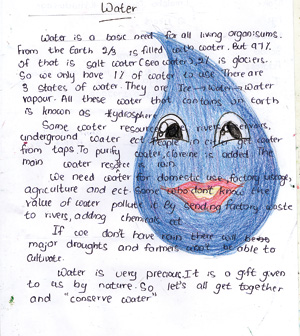 Water
Water is a basic need for all living organisums.
From the Earth 2/3 is filled with water. But 97%
of that is salt water (sea water), 2% is glaciers.
So we only have 1% of water to use. There are
3 states of water. They are Ice → Water → Water
vapour. All these water that contains on Earth
is known as Hydrosphere
Some water resources are rivers, reservoirs,
underground water ect. People in city get water
from taps. To purify water, clorine is added. The
main water
We need water for domestic use, factory usage,
agriculture and ect. Some who dont know the
value of water pollute it By sending factory waste
to rivers, adding chemicals ect.
If we don't have rain there will be
major droughts and farmers won't be able to
cultivate.
Water is very precious. It is a gift given
to us by nature. So, let's all get together
and "conserve water"